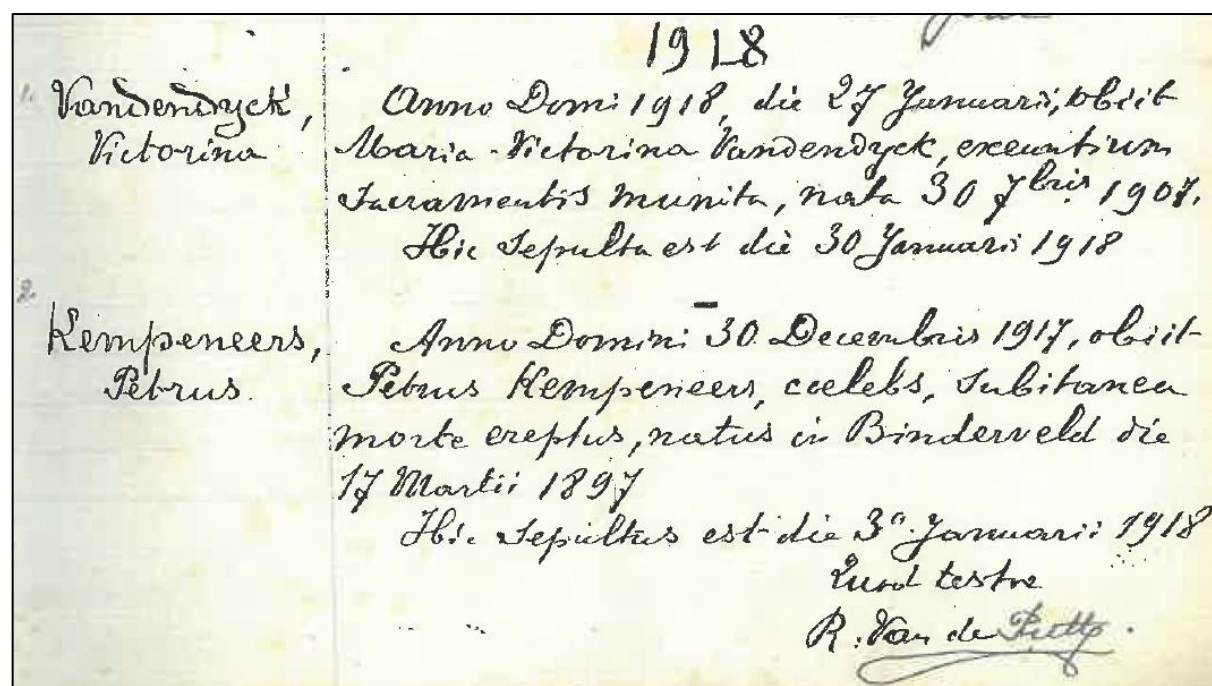 1918
1. Vandendyck,
Victorina
Anno Domi: 1918, die 27 Januarii, obiit
Maria-Victorina Vandendyck, exeuntium
Sacramentis munita, nata 30 7bris 1907.
Hic Sepulta est die 30 Januarii 1918
2.
Kempeneers,
Petrus.
Anno Domini 30 Decembris 1917, obiit
Petrus Kempeneers, coelebs, Subitanea
morte ereptus, natus in Binderveld die
17 Martii 1897
Hic Sepultus est die 3a Januarii 1918
Quod testor
R. Van de